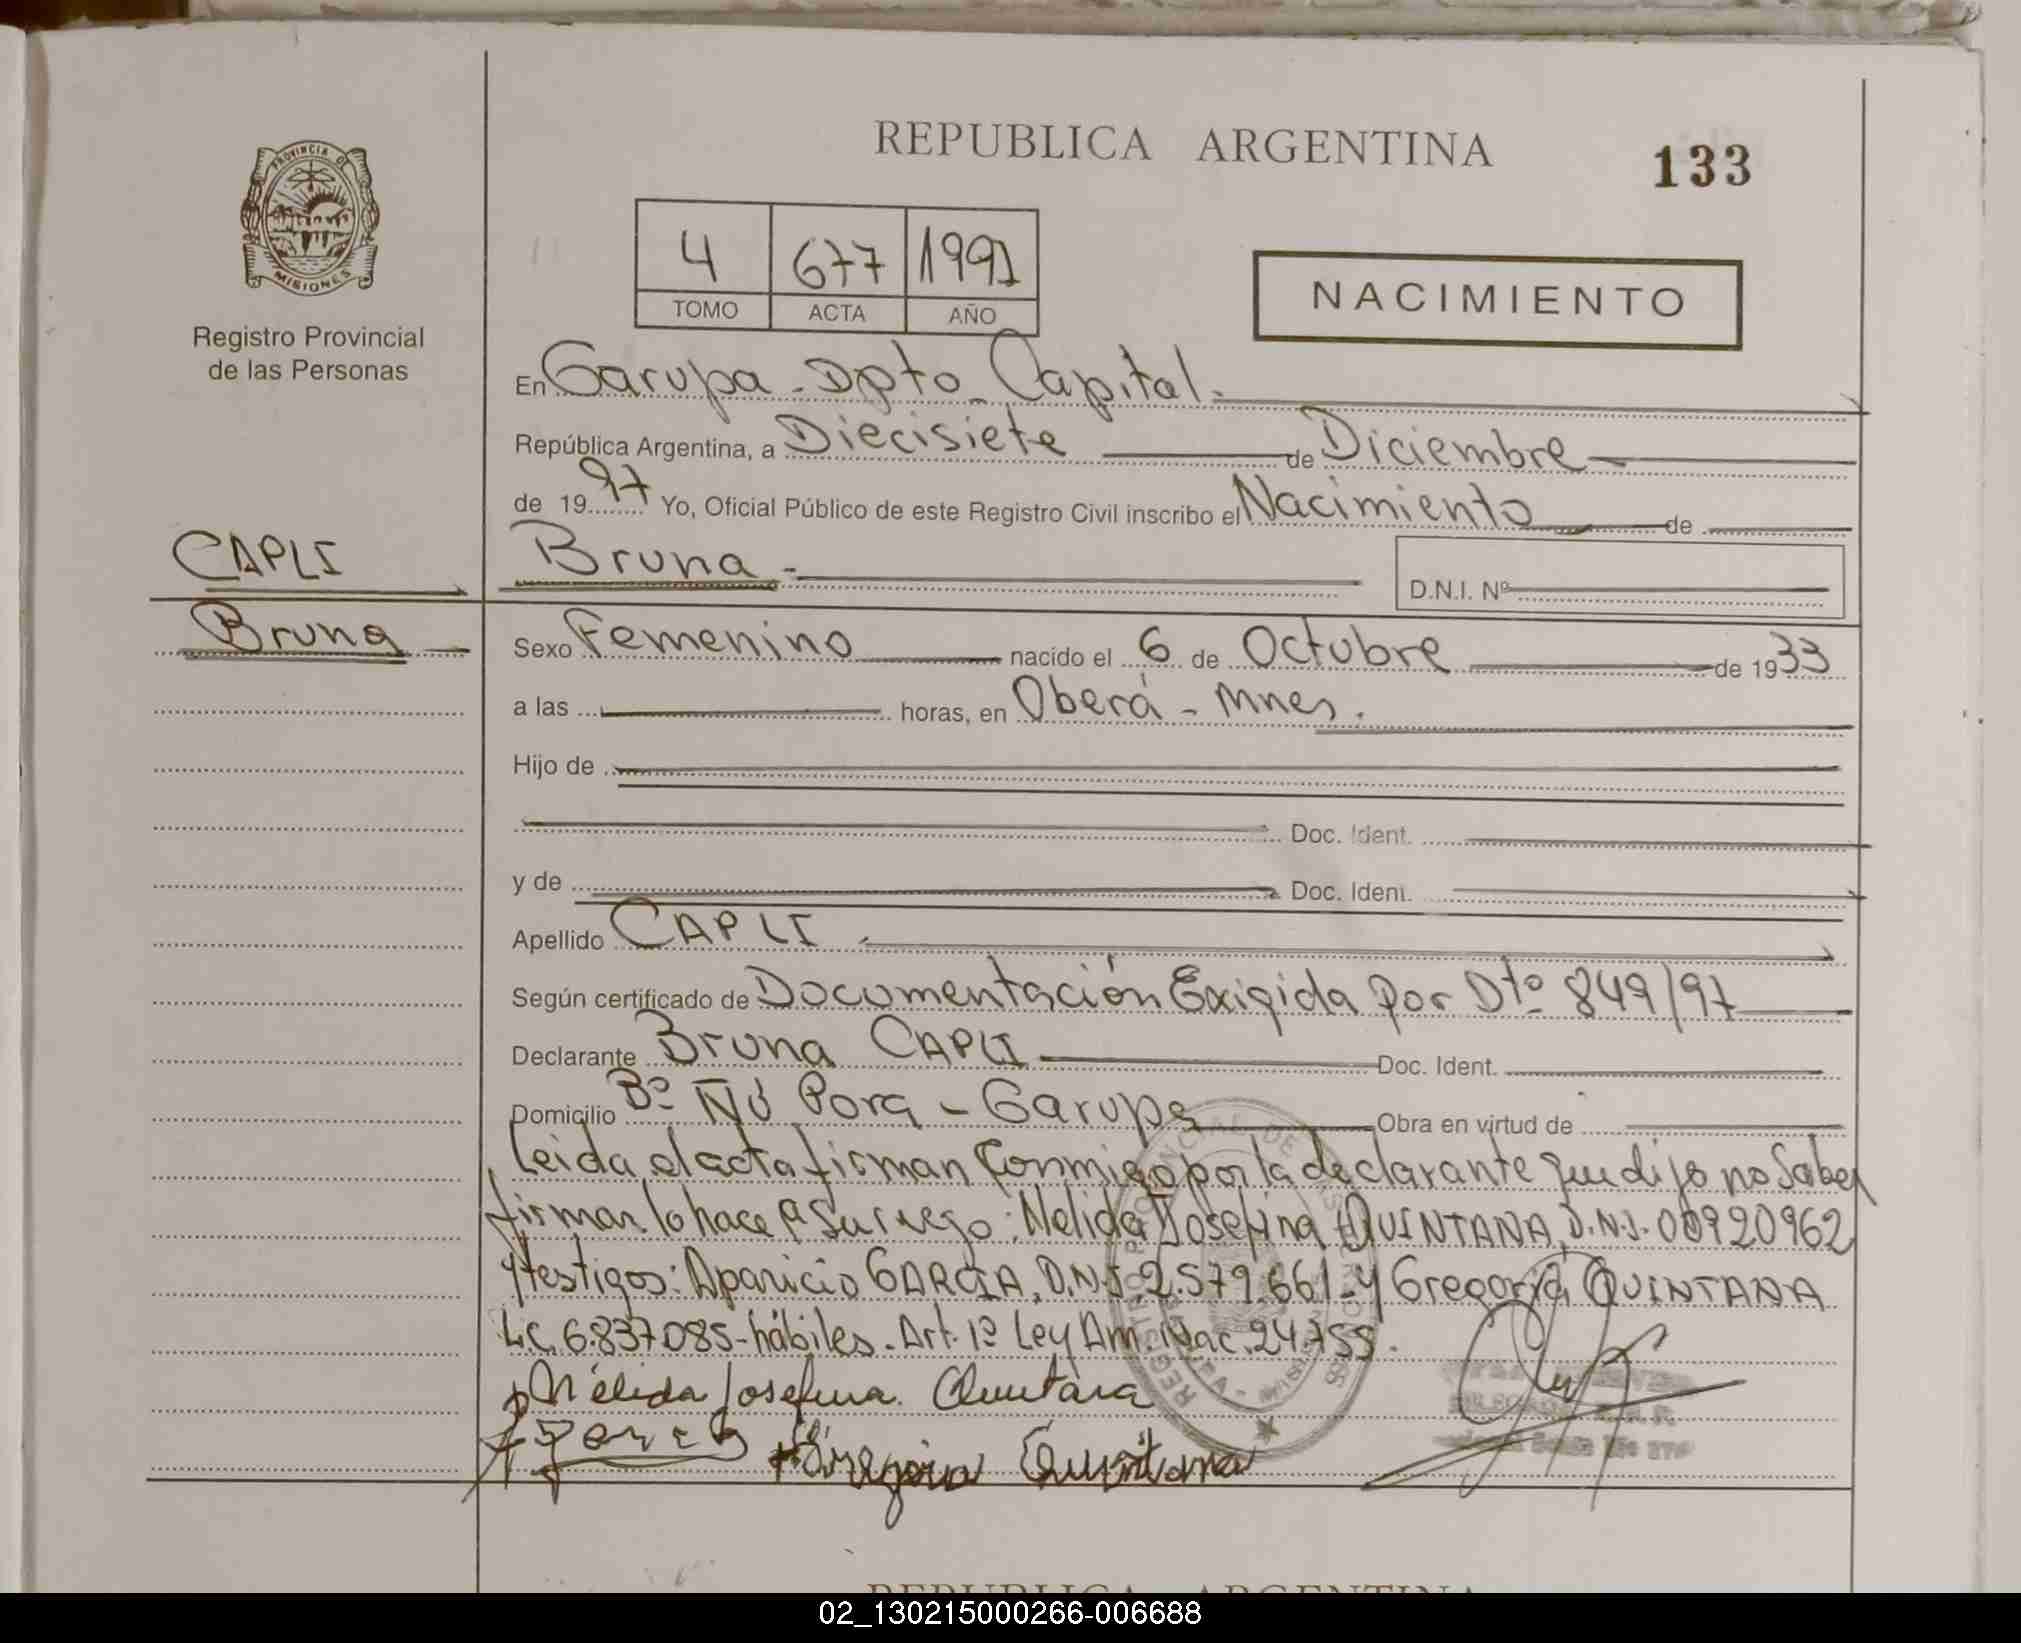 REPUBLICA ARGENTINA
133
PROVINCIA DE
MISIONES
Registro Provincial
de las Personas
4 677 1991
TOMO ACTA AÑO
NACIMIENTO
En Garupa - Dpto. Capital.
República Argentina, a Diecisiete de Diciembre
de 1997 Yo, Oficial Público de este Registro Civil inscribo el Nacimiento de
CAPLI
Bruna
Bruna -
D.N.I. Nº
Sexo Femenino nacido el 6 de Octubre de 1933
a las horas, en Oberá - Mnes.
Hijo de
Doc. Ident.
y de Doc. Ident.
Apellido CAPLI
Según certificado de Documentación Exigida por Dto 849/97
Declarante Bruna CAPLI Doc. Ident.
Domicilio Bº ÑÚ Pora - Garupa Obra en virtud de
Leida el acta firman conmigo por la declarante que dijo no saber
firmar lo hace a su ruego: Nelida Josefina QUINTANA, D.N.I. 00920962
y testigos: Aparicio GARCIA, D.N.I. 2.579.661 - y Gregoria QUINTANA
L.C. 6.837.085 - hábiles. Art. 1º Ley Am. Nac. 24.755.
Nélida Josefina Quintana
Gregoria Quintana
REPUBLICA ARGENTINA
02_130215000266-006688